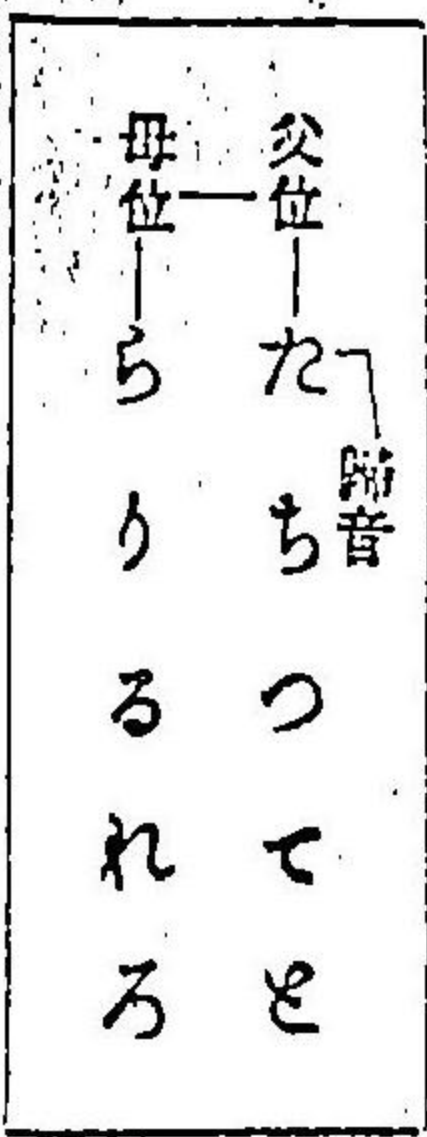 父位 たちつてと
母位 らりるれろ